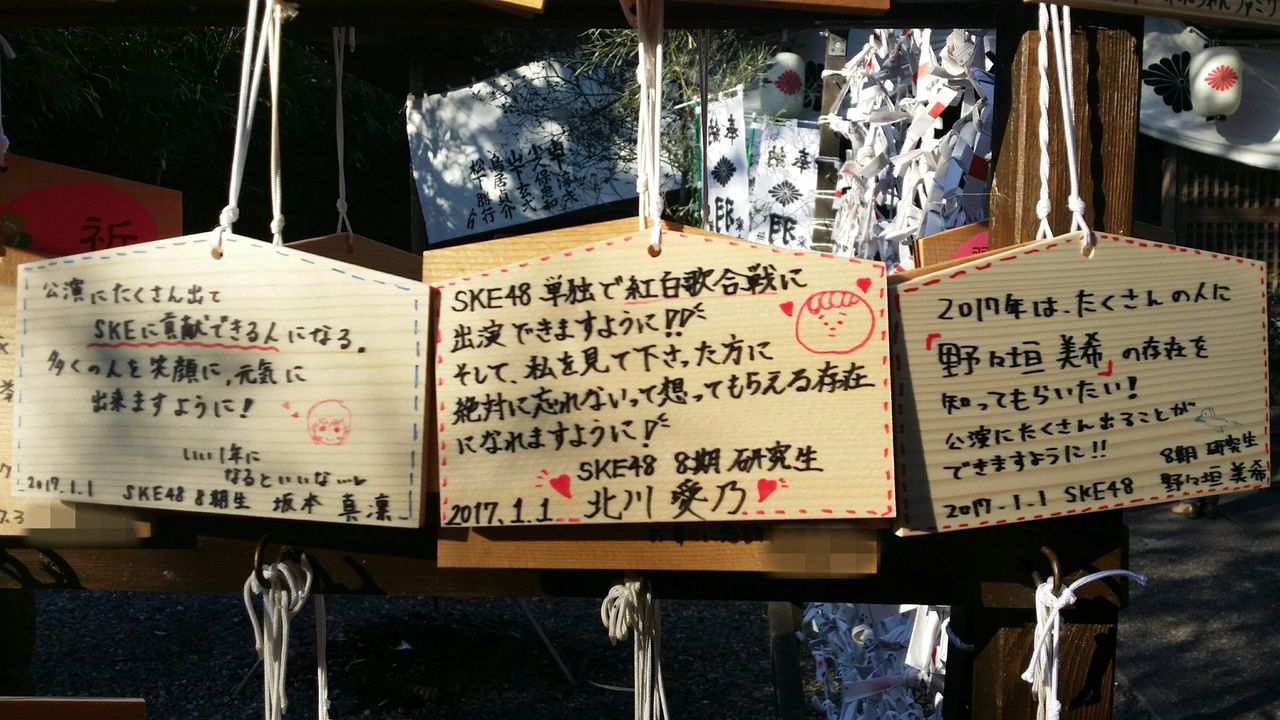 公演にたくさん出て
SKEに貢献できる人になる。
多くの人を笑顔に、元気に
出来ますように!
いい1年に
なるといいな…
2017.1.1 SKE48 8期生 坂本 真凛
SKE48 単独で紅白歌合戦に
出演できますように!!
そして、私を見て下さった方に
絶対に忘れないって想ってもらえる存在
になれますように!
SKE48 8期 研究生
2017.1.1 北川 愛乃
2017年は、たくさんの人に
「野々垣 美希」の存在を
知ってもらいたい!
公演にたくさん出ることが
できますように!!
8期 研究生
2017.1.1 SKE48 野々垣 美希
祈
奉
奉
山下玄弐
鳥居貞介
松下勝行